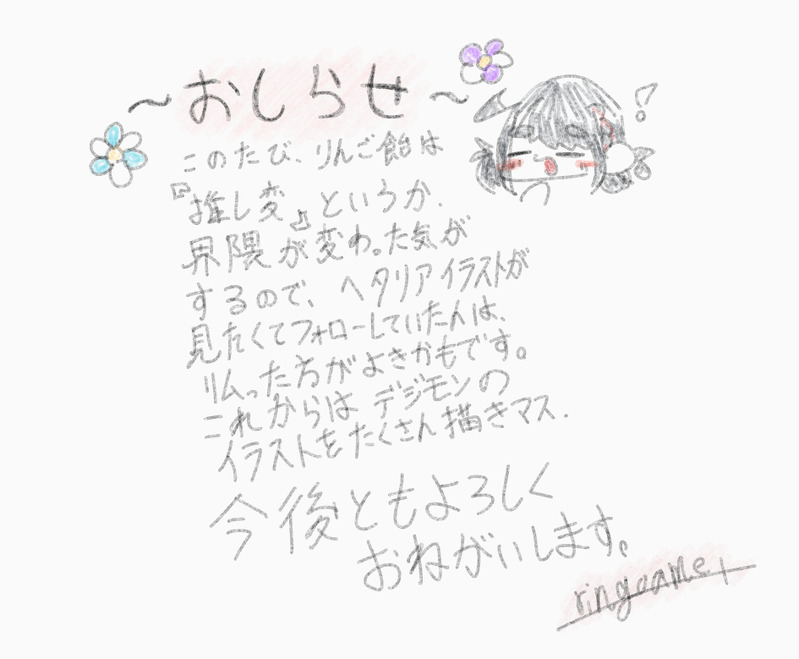 ～おしらせ～
!?
このたび、りんご飴は
『推し変』というか.
界隈が変わった気が
するので、ヘタリアイラストが
見たくてフォローしていた人は、
リムった方がよきかもです。
これからは デジモンの
イラストをたくさん描きマス.
今後ともよろしく
おねがいします。
ringoame